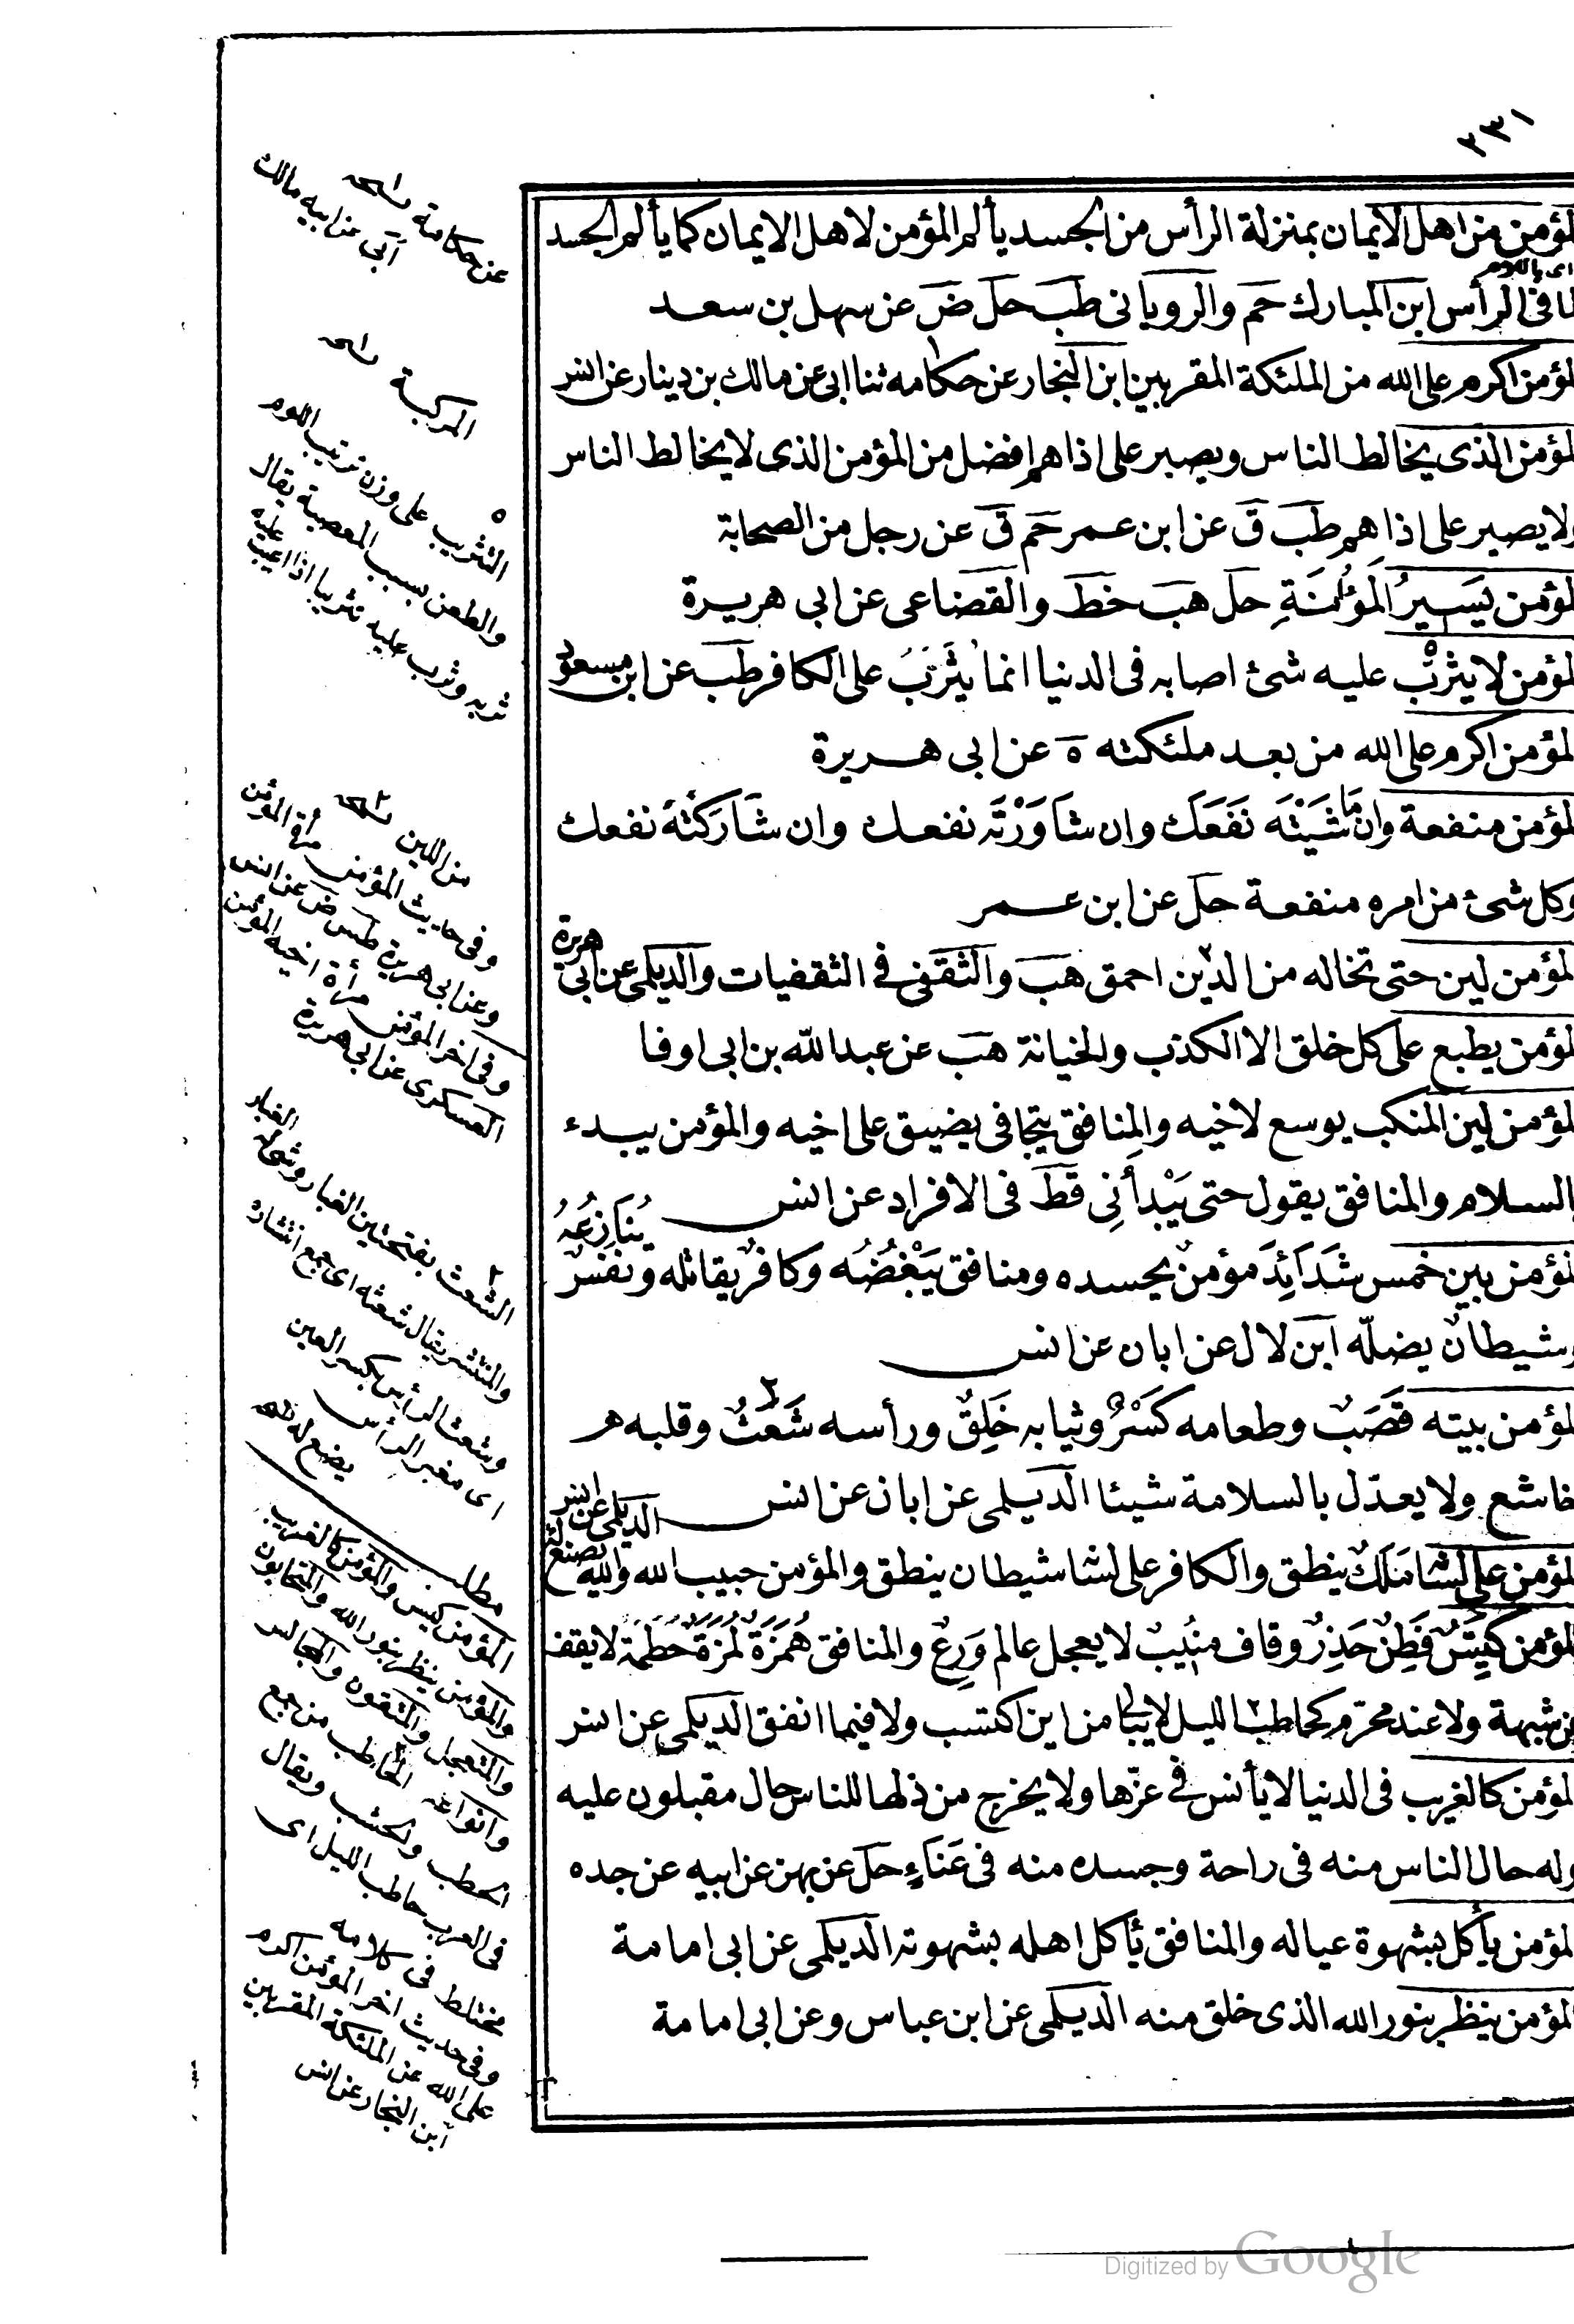 ٢٣١
لمؤمن من اهل الايمان بمنزلة الرأس من الجسد يألم المؤمن لاهل الايمان كما يألم الجسد
لما فى الرأس ابن المبارك حم والرويانى طب حل ض عن سهل بن سعد
لمؤمن اكرم على الله من الملئكة المقربين ابن النجار عن حكامه ثنا ابى عن مالك بن دينار عن انس
لمؤمن الذى يخالط الناس ويصبر على اذاهم افضل من المؤمن الذى لا يخالط الناس
ولا يصبر على اذاهم طب ق عن ابن عمر حم ق عن رجل من الصحابة
لمؤمن يَسِيرُ الْمَؤُنَةِ حل هب خط والقضاعى عن ابى هريرة
لمؤمن لا يثرب عليه شئ اصابه فى الدنيا انما يثرب على الكافر طب عن ابن مسعود
لمؤمن اكرم على الله من بعد ملئكته ه عن ابى هريرة
لمؤمن منفعة وان ماشيته نفعك وان شاورته نفعك وان شاركته نفعك
وكل شئ من امره منفعة حل عن ابن عمر
لمؤمن لين حتى تخاله من الدين احمق هب والثقفى فى الثقفيات والديلمى عن ابى هريرة
لمؤمن يطبع على كل خلق الا الكذب والخيانة هب عن عبد الله بن ابى اوفا
لمؤمن لين المنكب يوسع لاخيه والمنافق يتجافى يضيق على اخيه والمؤمن يبدء
بالسلام والمنافق يقول حتى يَبْدأَنِى قط فى الافراد عن انس
لمؤمن بين خمس شَدَائِدَ مؤمن يحسده ومنافق يَبْغُضُه وكافر يقاتله ونفس يُنَازِعُهُ
وشيطان يضله ابن لال عن ابان عن انس
لمؤمن بيته قصب وطعامه كسر وثيابه خَلِقٌ ورأسه شعث وقلبه
خاشع ولا يعدل بالسلامة شيئا الديلمى عن ابان عن انس
لمؤمن على لشا ملك ينطق والكافر على لشا شيطان ينطق والمؤمن حبيب الله والله يصنع له الديلمى عن انس
لمؤمن كيس فَطِنٌ حَذِرٌ وقاف منيب لا يعجل عالم وَرِعٌ والمنافق هُمَزَةٌ لُمَزَةٌ حُطَمَة لا يقف
عن شبهة ولا عند محرم كحاطب الليل لا يبالى من اين اكتسب ولا فيما انفق الديلمى عن انس
لمؤمن كالغريب فى الدنيا لا يأنس فى عزها ولا يخرج من ذلها للناس حال مقبلون عليه
وله حال الناس منه فى راحة وجسده منه فى عَنَاءٍ حل عن بهز عن ابيه عن جده
لمؤمن يأكل بشهوة عياله والمنافق يأكل اهله بشهوته الديلمى عن ابى امامة
المؤمن ينظر بنور الله الذى خلق منه الديلمى عن ابن عباس وعن ابى امامة
عن حكامة
ابى عن ابيه مالك
المركبة
التثريب على وزن ترتيب اللوم
والطعن بسبب المعصية يقال
ثربه وثرب عليه تثريبا اذا عيب عليه
من اللين
وفى حديث المؤمن مرآة المؤمن
وعن ابى هريرة طس ض عن انس
وفى اخر المؤمن مرأة اخيه المؤمن
العسكرى عن ابى هريرة
الشعث بفتحتين الغبار
والمنتشر يقال شعثه اى جمع انتشاره
وشعث الرأس بكسر العين
اى مغبر الرأس
يضع له
مطلب
المؤمن كيس والمؤمن كالغريب
والمؤمن ينظر بنور الله والمتحابون
والمتعجل والمتقون والمجالس
وانواعه الحاطب من جمع
الحطب والخشب ويقال
فى العرب حاطب الليل اى
مختلط فى كلامه
وفى حديث اخر المؤمن اكرم
على الله عن الملئكة المقربين
ابن النجار عن انس
Digitized by Google